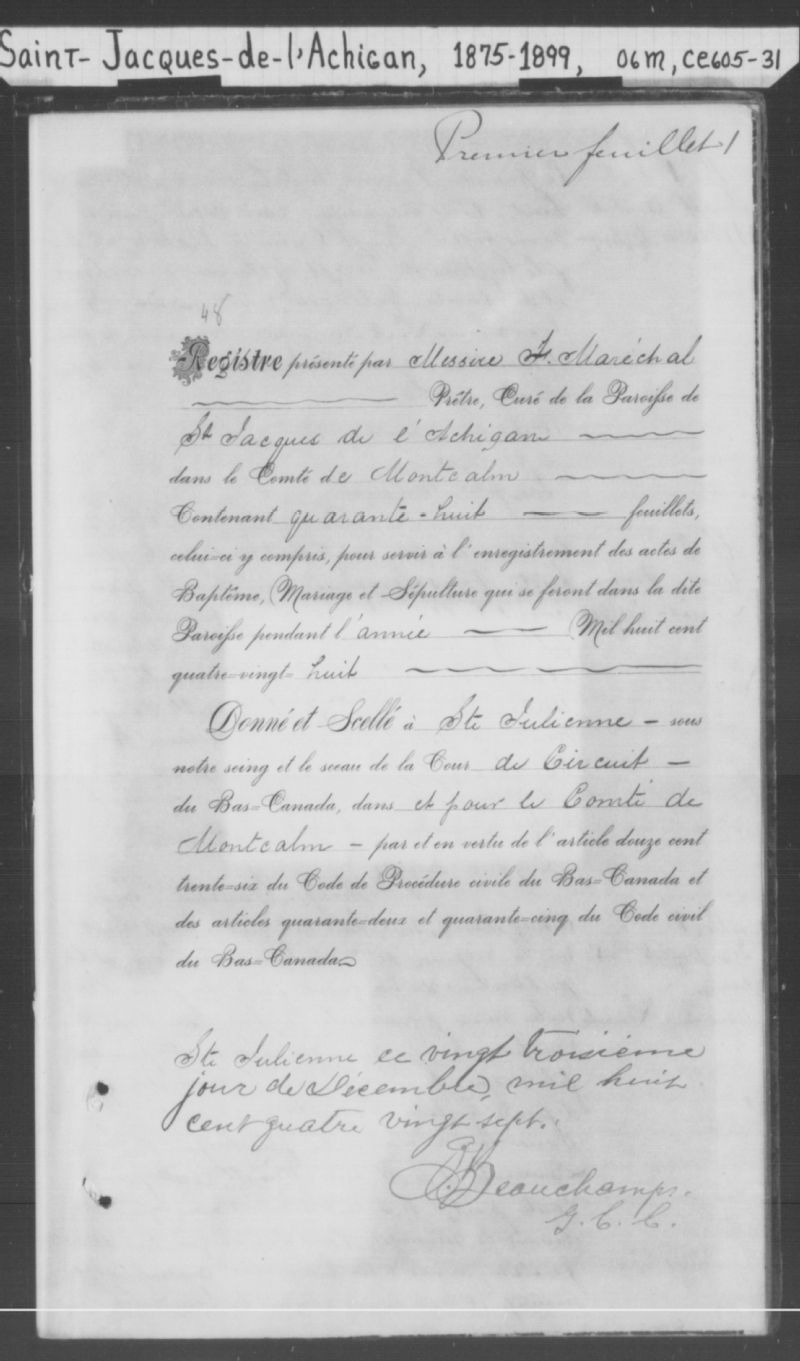 Saint-Jacques-de-l'Achigan, 1875-1899, 06M, CE605-31
Premier feuillet 1
48
Registre présenté par Messire Maréchal
Prêtre, Curé de la Paroisse de
St Jacques de l'Achigan
dans le Comté de Montcalm
Contenant quarante-huit feuillets,
celui=ci y compris, pour servir à l'enregistrement des actes de
Baptême, Mariage et Sépulture qui se feront dans la dite
Paroisse pendant l'année Mil huit cent
quatre=vingt= huit
Donné et Scellé à Ste Julienne - sous
notre seing et le sceau de la Cour de Circuit -
du Bas=Canada, dans et pour le Comté de
Montcalm - par et en vertu de l'article douze cent
trente=six du Code de Procédure civile du Bas=Canada et
des articles quarante=deux et quarante=cinq du Code civil
du Bas=Canada
Ste Julienne ce vingt troisième
jour de Décembre, mil huit
cent quatre vingt sept.
Beauchamps.
G. C. C.